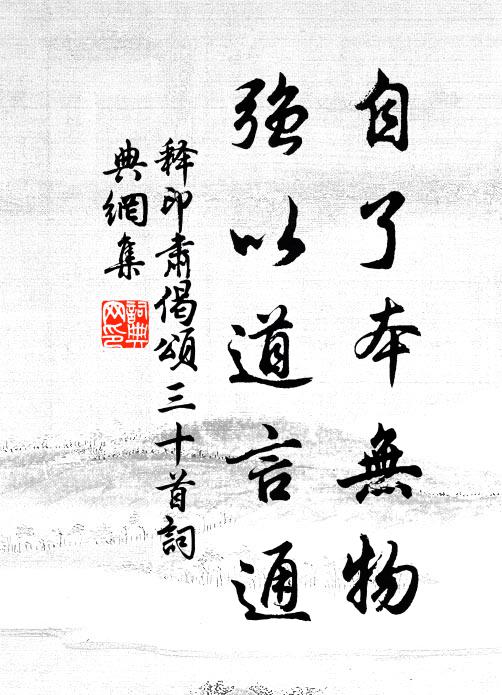 自了本無物
強以道言通
釋印肅偈頌三十首詞
典網集
詞典
网印